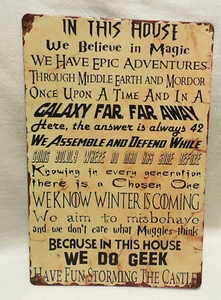 IN THIS HOUSE
We Believe in Magic
WE HAVE EPIC ADVENTURES
THROUGH MIDDLE EARTH AND MORDOR
ONCE UPON A TIME AND IN A
GALAXY FAR FAR AWAY
Here, the answer is always 42
WE ASSEMBLE AND DEFEND WHILE
GOING BOLDLY WHERE NO MAN HAS GONE BEFORE
Knowing in every generation
there is a Chosen One
WE KNOW WINTER IS COMING
We aim to misbehave
and we don't care what Muggles think
BECAUSE IN THIS HOUSE
WE DO GEEK
HAVE FUN STORMING THE CASTLE